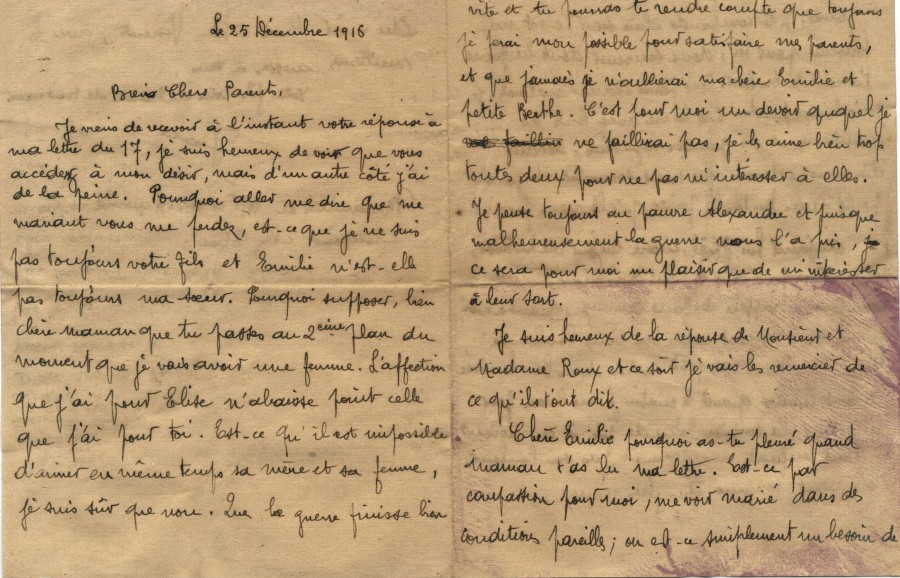 Le 25 Décembre 1916
Biens Chers Parents,
Je viens de recevoir à l'instant votre réponse à
ma lettre du 17, je suis heureux de voir que vous
accédez à mon désir, mais d'un autre côté j'ai
de la peine. Pourquoi aller me dire que me
mariant vous me perdez, est-ce que je ne suis
pas toujours votre fils et Emilie n'est-elle
pas toujours ma sœur. Pourquoi supposer, bien
chère maman que tu passes au 2ème plan du
moment que je vais avoir une femme. L'affection
que j'ai pour Elise n'abaisse point celle
que j'ai pour toi. Est-ce qu'il est impossible
d'aimer en même temps sa mère et sa femme,
je suis sûr que non. Que la guerre finisse bien
vite et tu pourras te rendre compte que toujours
je ferai mon possible pour satisfaire mes parents,
et que jamais je n'oullierai ma chère Emilie et
petite Berthe. C'est pour moi un devoir auquel je
ne faillirai pas, je les aime bien trop
toutes deux pour ne pas m'intéresser à elles.
Je pense toujours au pauvre Alexandre et puisque
malheureusement la guerre nous l'a pris,
ce sera pour moi un plaisir que de m'intéresser
à leur sort.
Je suis heureux de la réponse de Monsieur et
Madame Roux et ce soir je vais les remercier de
ce qu'ils t'ont dit.
Chère Emilie pourquoi as-tu pleuré quand
maman t'as lu ma lettre. Est-ce par
compassion pour moi, me voir marié dans des
conditions pareilles; ou est-ce simplement un besoin de